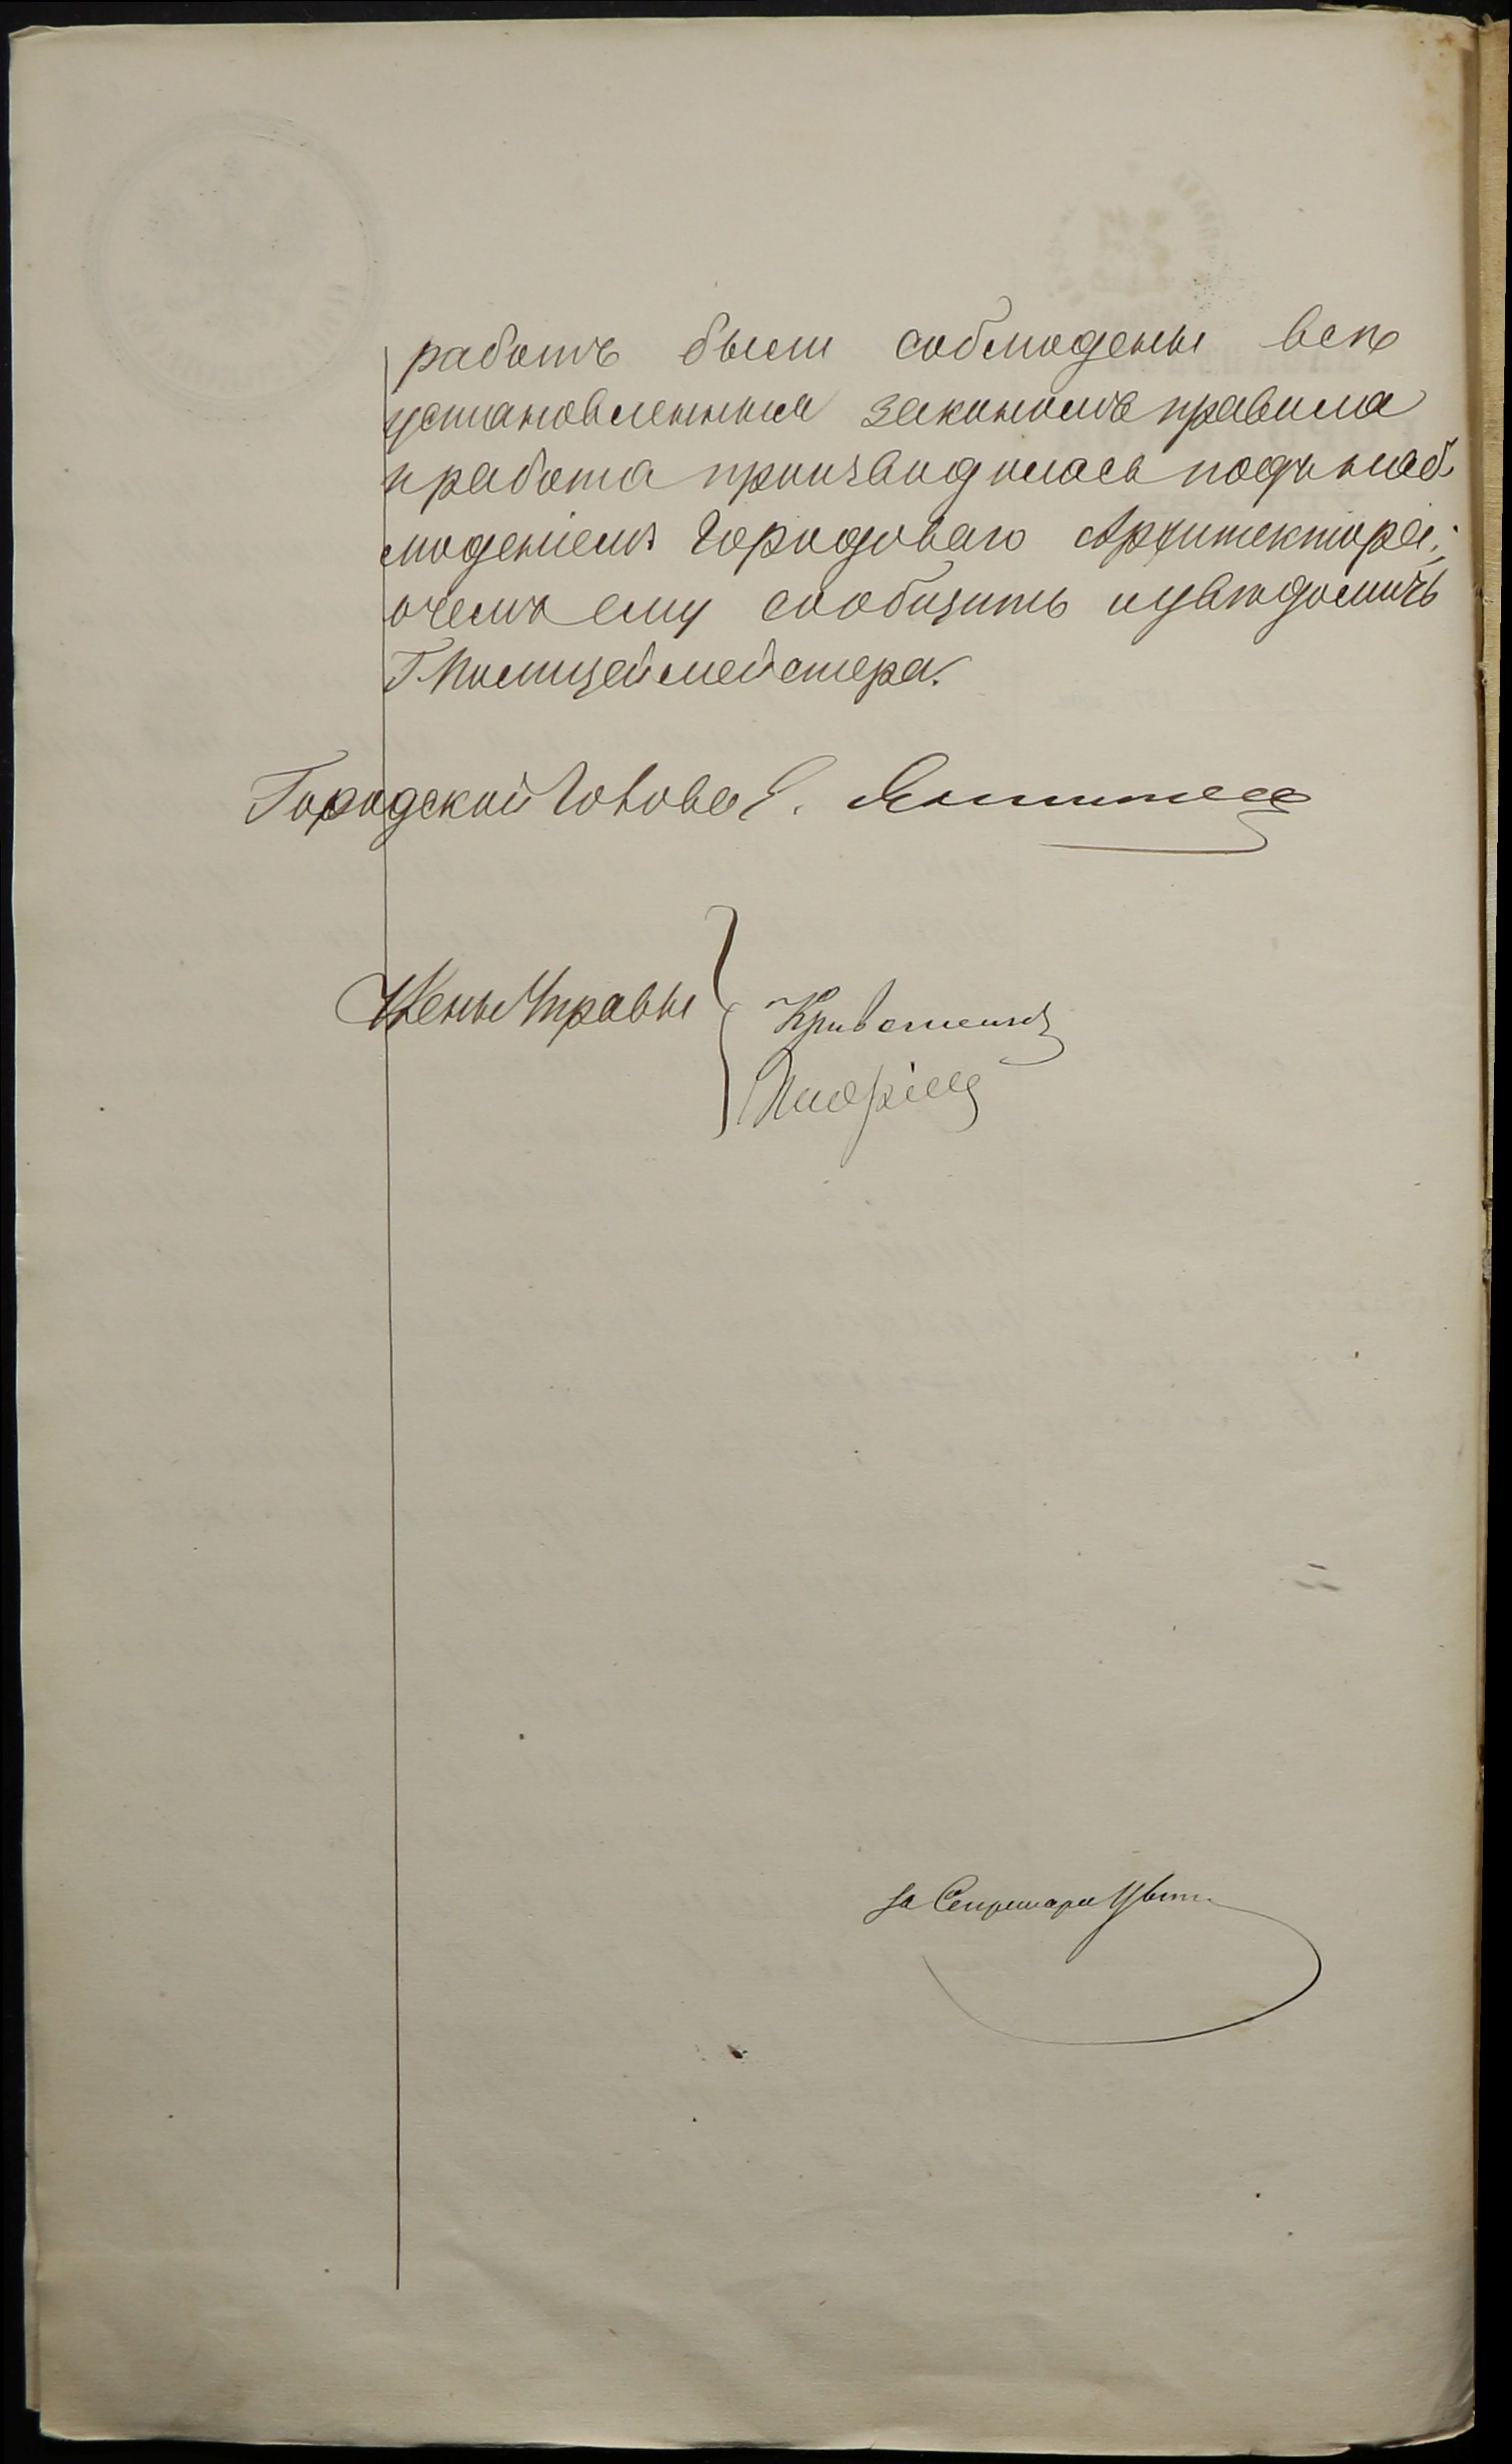 работъ были соблюдены всѣ
установленныя закономъ правила
и работа производилась подъ наб-
люденіемъ Городоваго Архитектора;
о чемъ ему сообщить и увѣдомить
Г. Полицеймейстера.
Городской Голова
Члены Управы
За Секретаря